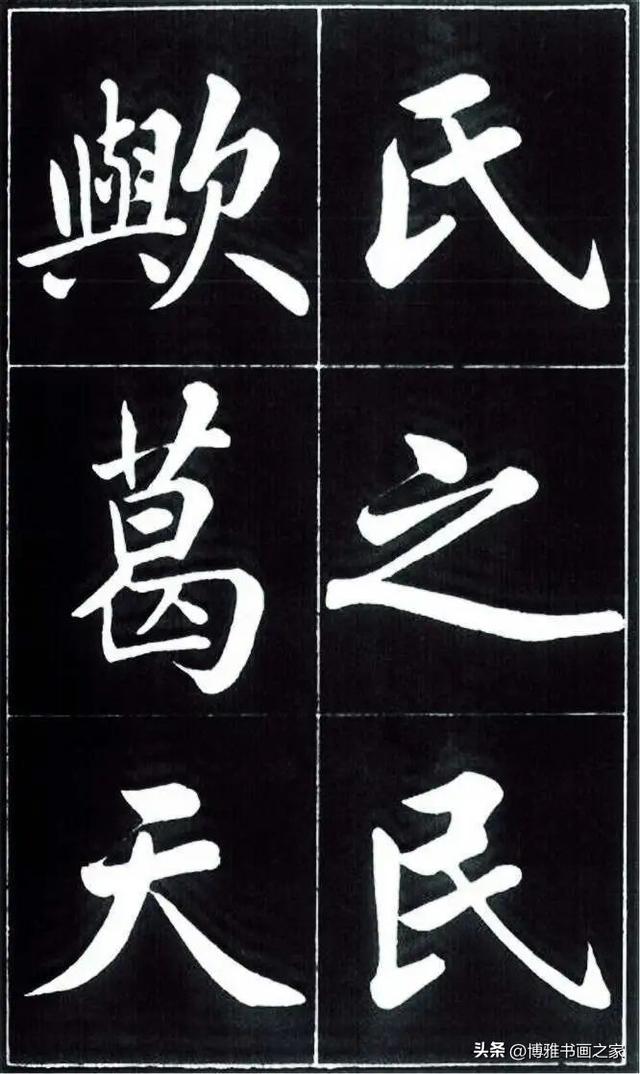 氏之民
歟葛天
头条 @博雅书画之家